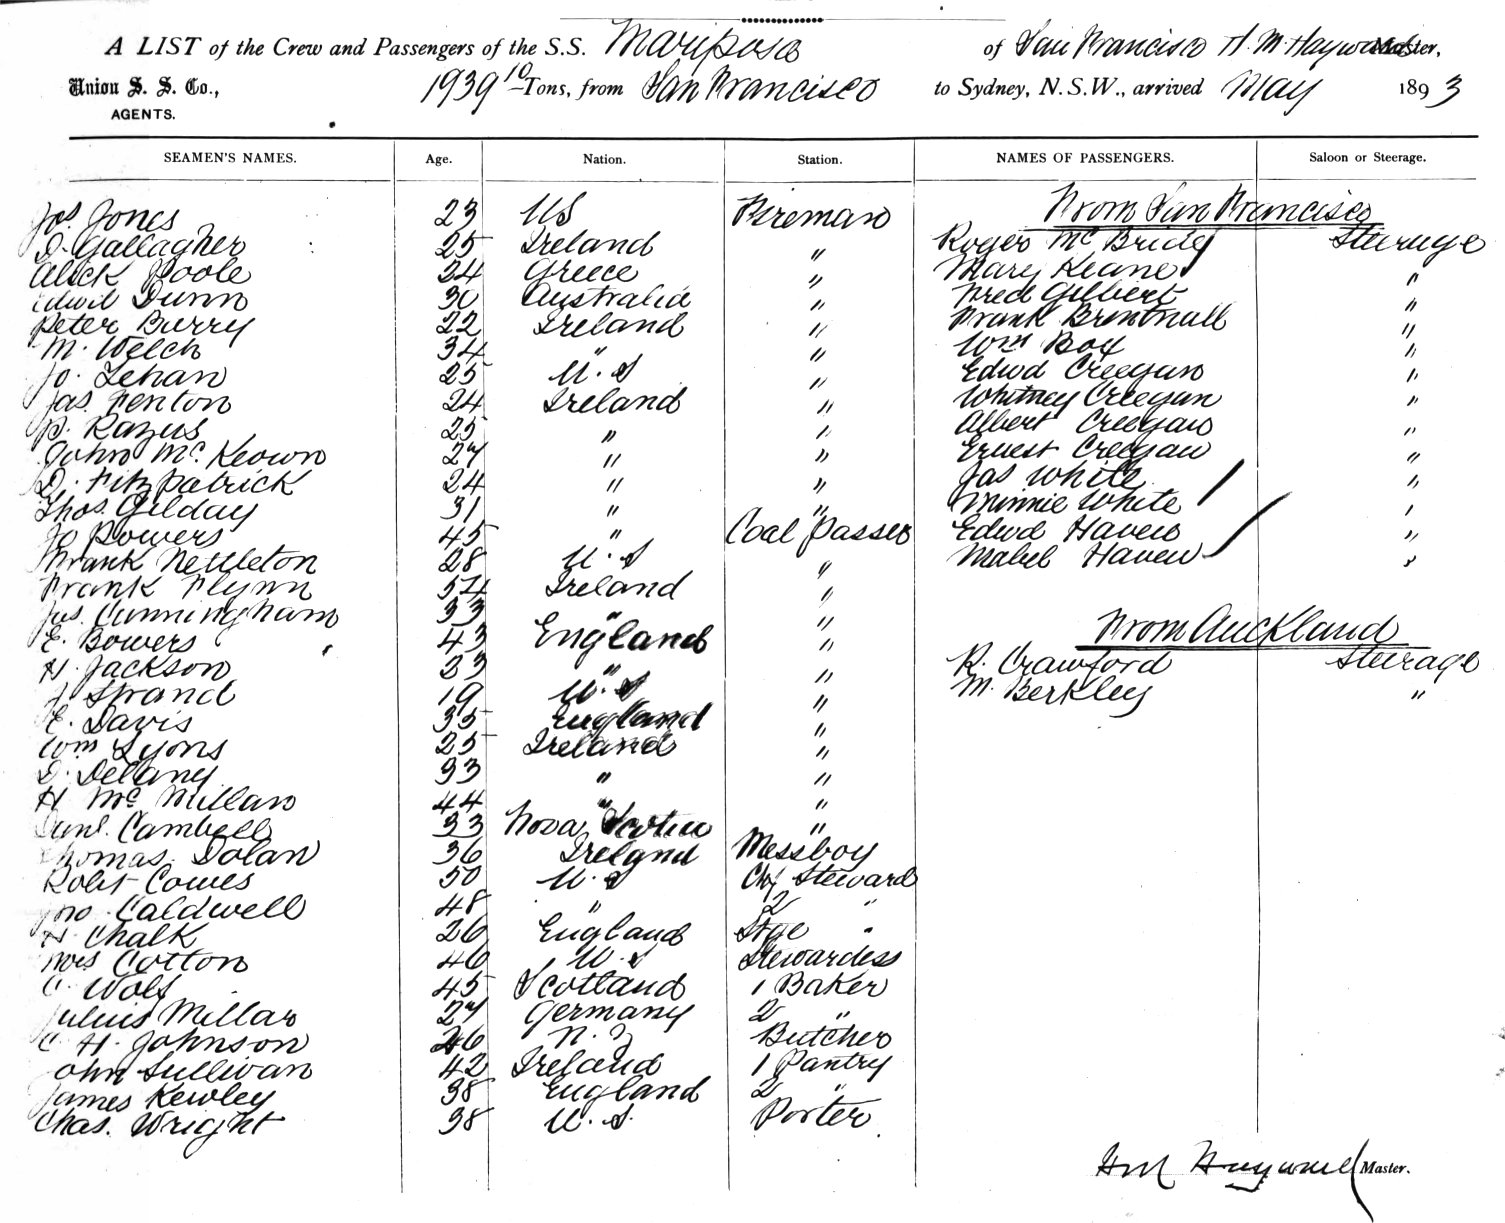 A LIST of the Crew and Passengers of the S.S. Mariposa of San Francisco H. M. Hayward Master,
Union S. S. Co., 1939 10/ Tons, from San Francisco to Sydney, N.S.W., arrived May 1893
AGENTS.
SEAMEN'S NAMES. Age. Nation. Station. NAMES OF PASSENGERS. Saloon or Steerage.
Jos Jones 23 US Fireman From San Francisco
D. Gallagher 25 Ireland " Roger McBride Steerage
Alick Poole 24 Greece " Mary Keane "
Edwd Dunn 30 Australia " Fred Gilbert "
Peter Burry 22 Ireland " Frank Brintnall "
M. Welch 34 " " Wm Boy "
Jo. Lehan 25 U.S " Edwd Creegan "
Jas. Fenton 24 Ireland " Whitney Creegan "
P. Razus 25 " " Albert Creegan "
John Mc.Keown 27 " " Ernest Creegan "
D. Fitzpatrick 24 " " Jas White "
Thos. Gilday 31 " " Minnie White "
Jo Powers 45 " Coal Passer Edwd Haven "
Frank Nettleton 28 U.S " Mabel Haven "
Frank Flynn 54 Ireland "
Jas. Cunningham 33 " " From Auckland
E. Bowers 43 England " R. Crawford Steerage
H. Jackson 33 " " M. Berkley "
Strand 19 U.S "
E. Davis 35 England "
Wm Lyons 25 Ireland "
D. Delany 33 " "
H McMillan 44 " "
Danl. Cambell 33 Nova Scotia "
Thomas Dolan 36 Ireland Messboy
Robt Cowes 50 U.S Chf Steward
Jno. Caldwell 48 " 2 "
H. Chalk 26 England Stge "
Mrs Cotton 40 U.S Stewardess
C. Wolf 45 Scotland 1 Baker
Julius Millar 27 Germany 2 "
C. H. Johnson 26 N.Z Butcher
John Sullivan 42 Ireland 1 Pantry
James Kewley 38 England 2 "
Chas. Wright 38 U.S. Porter
HM Hayward Master.